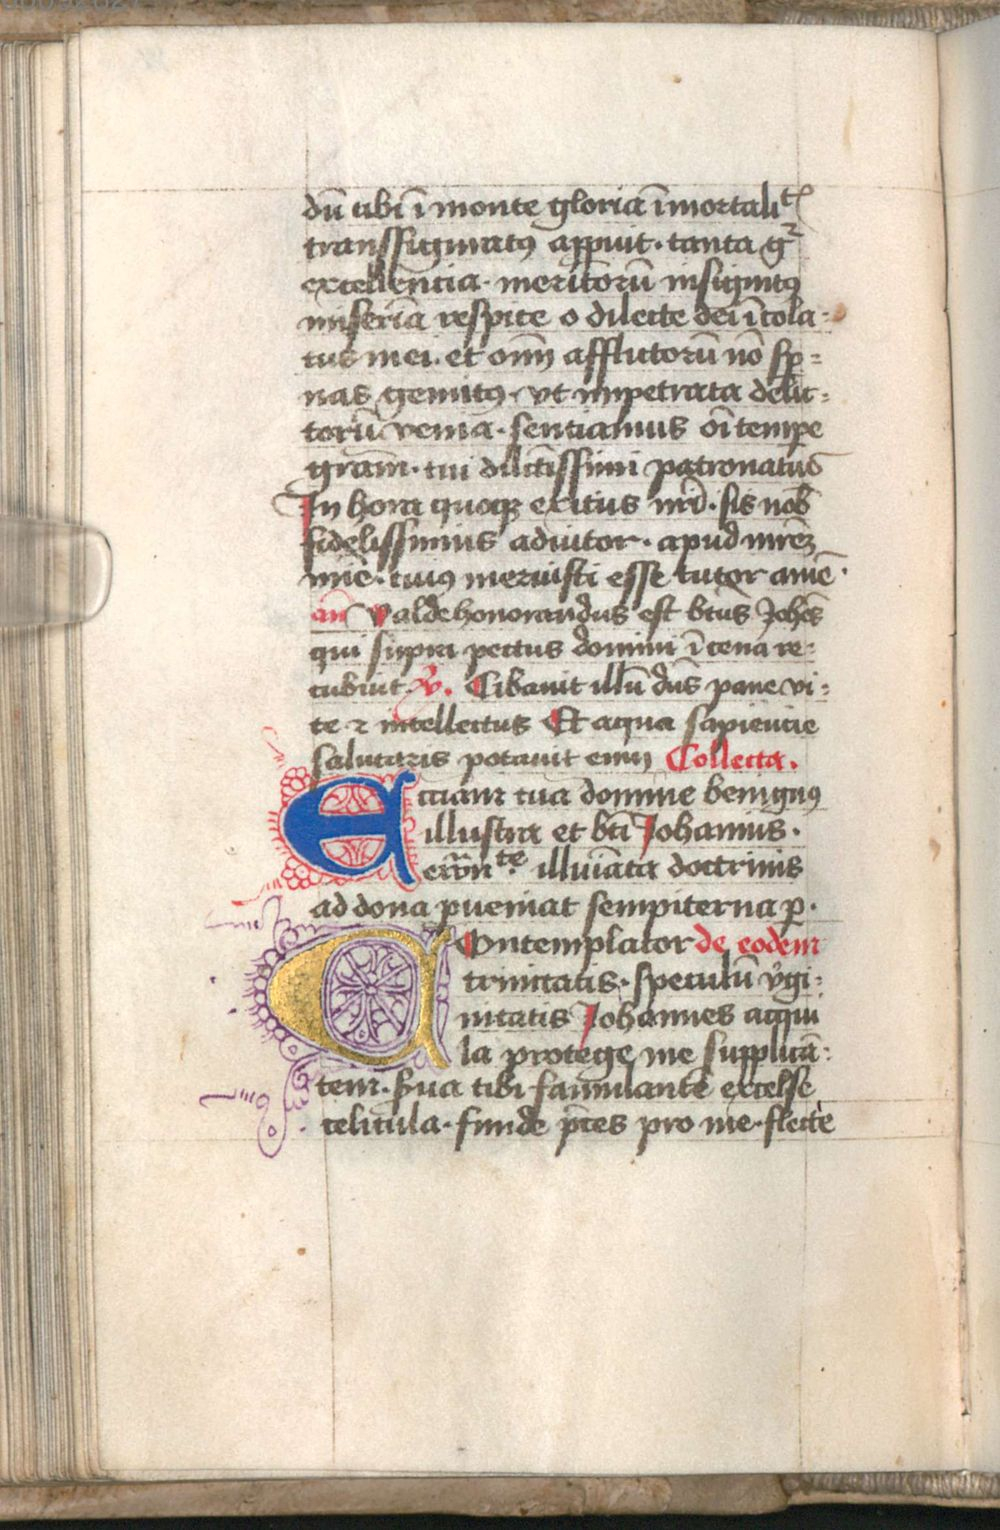 dū tibi ī monte gloria īmortalitꝭ
transfiguratꝯ appuit · tanta gͬ
excellencia · meritorū insignitꝯ
miseria respice o dilecte dei īcola-
tus mei · et om̄ afflictorū nō sp̱-
nas gemitꝯ · vt impetrata delic-
torū venia · senciamus oī tempe
gram · tui dilc̄issimi patronatus
In hora quoqꝫ exitus mei · sis nob̄
fidelissimus adiutor · apud mr̄ēꝫ
mīe · cuiꝯ meruisti esse tutor amē ·
an̄ Valde honorandus est btus Joh̄es
qui supra pectus domini ī cena re-
cubuit ℣. Cibauit illū dn̄s pane vi-
te ⁊ intellectus Et aqua sapiencie
salutaris potauit eum Collecta.
Ecciam tua domine benignꝯ
illustra et bt̄i Johannis ·
ewn̄te · illuīata doctrinis
ad dona pueniat sempiterna p̱ ·
Contemplator de eodem
trinitatis · speculū v̄gi-
nitatis Johannes acqui
la protege me supplicā-
tem · s̄ua tibi famulantē excelse
celicula · funde p̄ces pro me · flecte